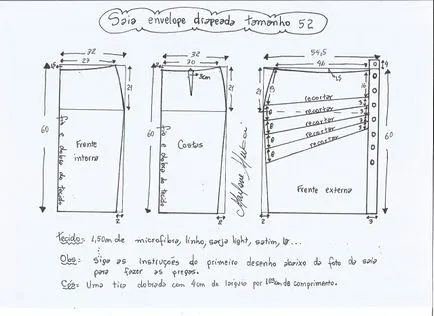 Saia envelope drapeada tamanho 52
32
27
21
60
Fio e dobra do tecido
Frente
interna
2
32
30
3cm
21
60
Fio e dobra do tecido
Costas
2
Marlene Mukai
54,5
46
4
1,5
21
recortar
recortar
recortar
recortar
recortar
3
3
3
8
8
8
8
60
Frente externa
2
3
Tecido: 1,50m de microfibra, linho, sarja light, setim,
Obs: Siga as instruções do primeiro desenho abaixo da foto da saia
para fazer as pregas.
Cós: Uma tira dobrada com 4cm de largura por cm de comprimento.